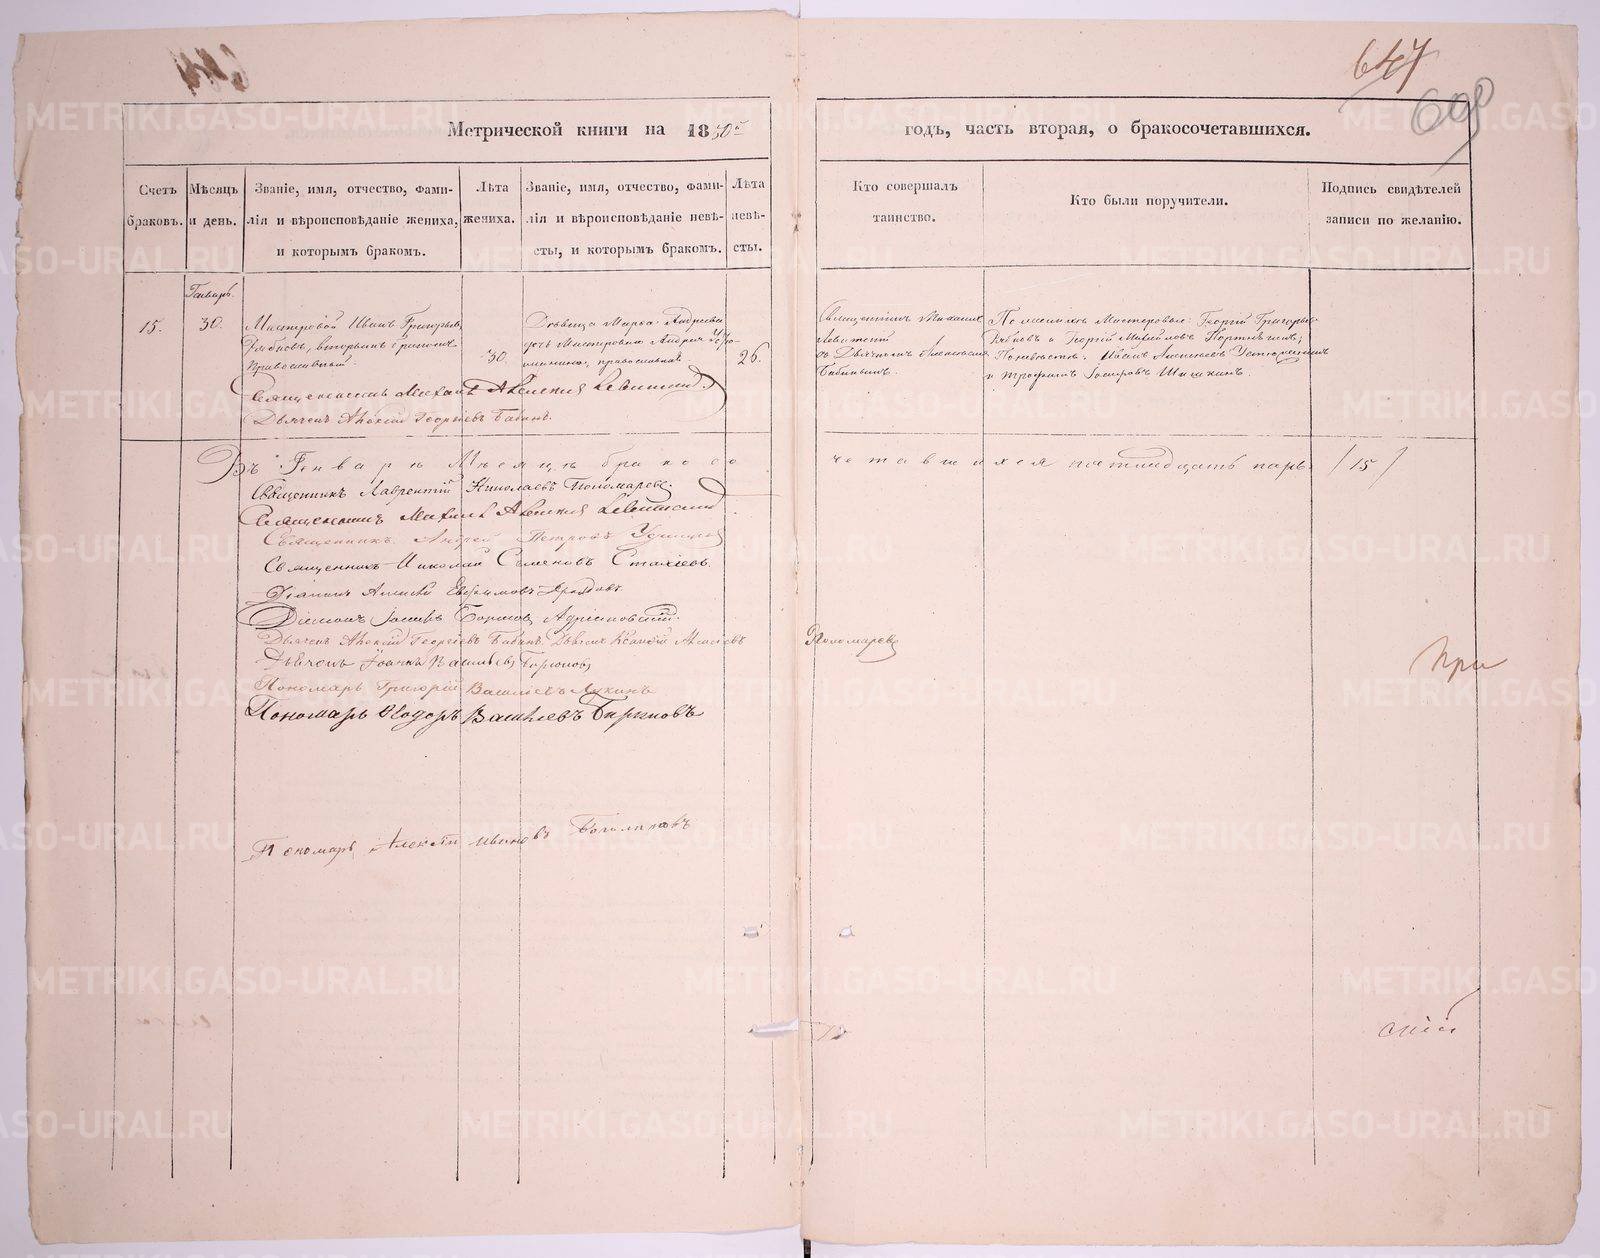 647
609
Метрической книги на 1850й
годъ, часть вторая, о бракосочетавшихся.
Счетъ браковъ.
Мѣсяцъ и день.
Званіе, имя, отчество, фами-
лія и вѣроисповѣданіе жениха,
и которымъ бракомъ.
Лѣта
жениха.
Званіе, имя, отчество, фами-
лія и вѣроисповѣданіе невѣ-
сты, и которымъ бракомъ.
Лѣта
невѣ-
сты.
Кто совершалъ
таинство.
Кто были поручители.
Подпись свидѣтелей
записи по желанію.
Генварь.
15.
30.
Мастеровой Иванъ Григорьевъ
Рябковъ, вторымъ бракомъ
православный.
30.
Дѣвица Марья Андреева
дочь Мастероваго Андрея
православная.
26.
Священникъ Михаилъ
Левитскій
съ Дьячкомъ Алексѣемъ
Бабинымъ.
По женихѣ Мастеровые: Георгій Григорьевъ
Рябковъ и Георгій Михайловъ
По невѣстѣ: Иванъ Алексѣевъ Устюжанинъ
и Трофимъ Іосифовъ Шишкинъ.
Священникъ Михаилъ Алексѣевъ Левитскій.
Дьячекъ Алексѣй Георгіевъ Бабинъ.
Въ Генварѣ Мѣсяцѣ бракосо
четавшихся пятнадцать паръ /15/
Священникъ Лаврентій Николаевъ Пономаревъ.
Священникъ Михаилъ Алексѣевъ Левитскій
Священникъ Андрей Петровъ Удинцевъ
Священникъ Николай Семеновъ Стахіевъ.
Діаконъ Алексѣй Евфимовъ
Діаконъ Іосифъ Адріановскій.
Дьячекъ Алексѣй Георгіевъ Бабинъ. Дьячекъ Алексѣевъ
Пономаревъ
Дьячекъ Іоаннъ Васильевъ Бирюковъ
Пономарь Григорій Васильевъ Лукинъ
Пономарь Ѳедоръ Васильевъ Бирюковъ
Пономарь Алексѣй Ивановъ Богомоловъ
При
скій
METRIKI.GASO-URAL.RU